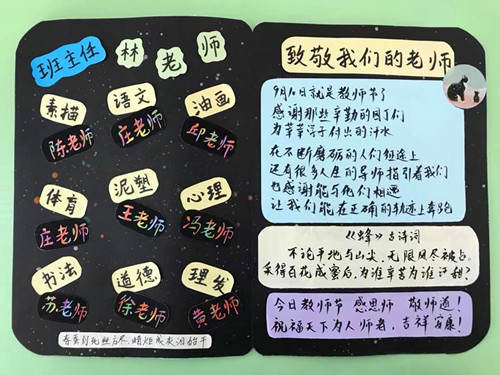 班主任 林老师
素描 语文 油画
陈老师 庄老师 邱老师
体育 泥塑 心理
庄老师 王老师 冯老师
书法 道德 理发
苏老师 徐老师 黄老师
春蚕到死丝方尽,蜡炬成灰泪始干
致敬我们的老师
9月10日就是教师节了
感谢那些辛勤的园丁们
为莘莘学子付出的汗水
在不断磨砺的人们短途上
还有很多人生的导师指引着我们
也感谢能与他们相遇
让我们能在正确的轨迹上奔跑
《蜂》古诗词
不论平地与山尖,无限风尽被占
采得百花成蜜后,为谁辛苦为谁汗甜?
今日教师节 感恩师 敬师道!
祝福天下为人师者,吉祥安康!